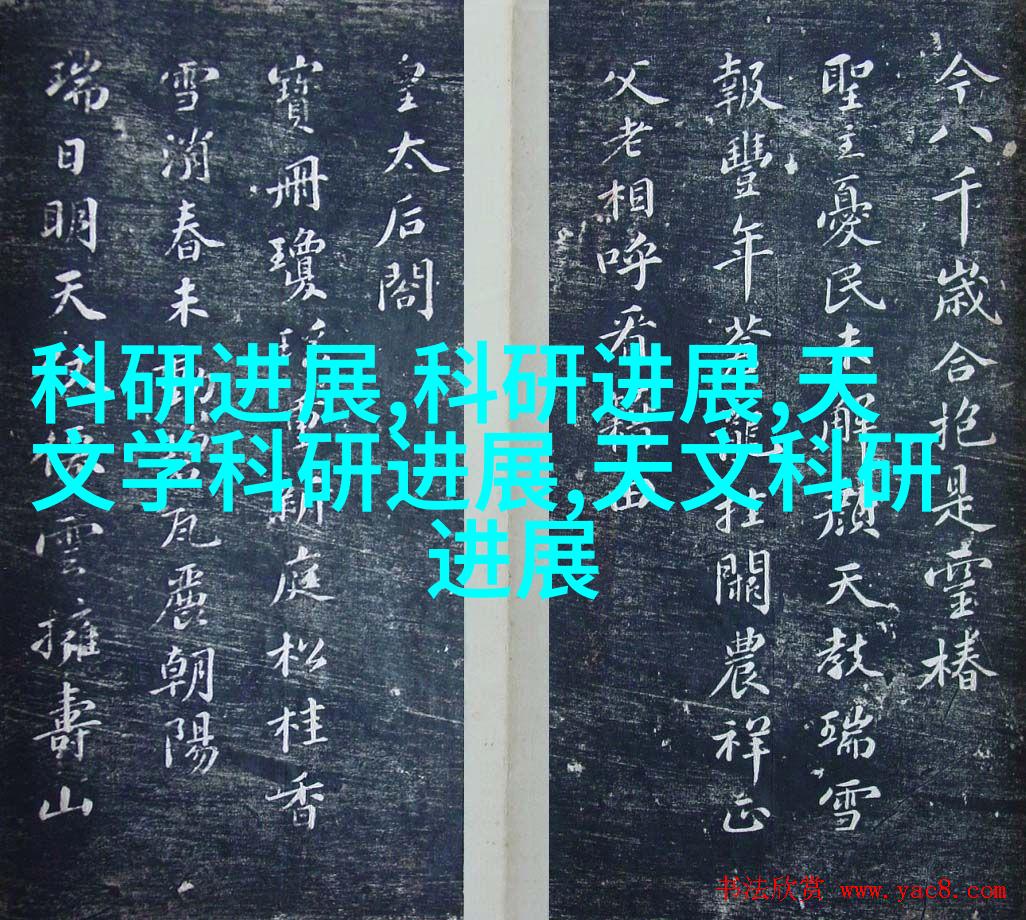 今八千歳合抱是靈椿
聖主憂民未解顔天教瑞雪
報豐年蒼龍挂闕農祥正
父老相呼看
皇太后閤
寶冊瓊瑤庭松桂香
雪消春未瓦麗朝陽
瑞日明天雲擁壽山
科研进展,科研进展,天
文学科研进展,天文科研
进展
书法欣赏 www.yac8.com